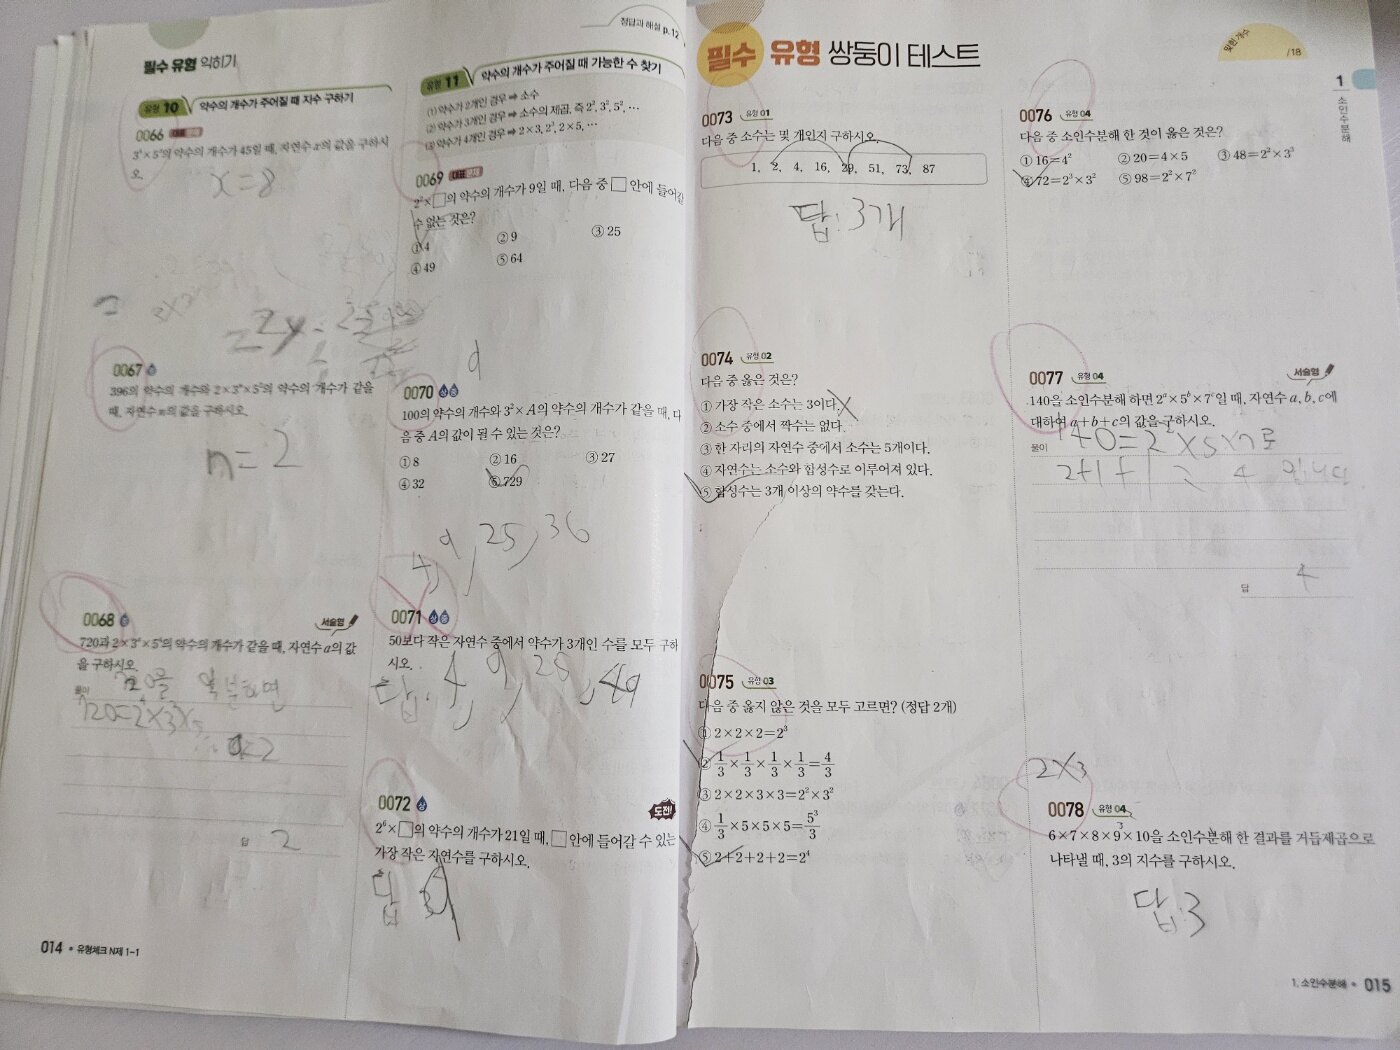 정답과 해설 p.12
필수 유형 익히기
유형 10 약수의 개수가 주어질 때 지수 구하기
0066 대표문제
3⁴×5ˣ의 약수의 개수가 45일 때, 자연수 x의 값을 구하시
오.
x=8
0067
396의 약수의 개수와 2×3ⁿ×5²의 약수의 개수가 같을
때, 자연수 n의 값을 구하시오.
n=2
0068 중
서술형
720과 2×3ᵃ×5⁴의 약수의 개수가 같을 때, 자연수 a의 값
을 구하시오.
풀이
답 2
014 • 유형체크 N제 1-1
유형 11 약수의 개수가 주어질 때 가능한 수 찾기
(1) 약수가 2개인 경우 ➡ 소수
(2) 약수가 3개인 경우 ➡ 소수의 제곱, 즉 2², 3², 5², …
(3) 약수가 4개인 경우 ➡ 2×3, 2³, 2×5, …
0069 대표문제
2²×□의 약수의 개수가 9일 때, 다음 중 □ 안에 들어갈
수 없는 것은?
① 4 ② 9 ③ 25
④ 49 ⑤ 64
0070 상중
100의 약수의 개수와 3²×A의 약수의 개수가 같을 때, 다
음 중 A의 값이 될 수 있는 것은?
① 8 ② 16 ③ 27
④ 32 ⑤ 729
4, 9, 25, 36
0071 상중
50보다 작은 자연수 중에서 약수가 3개인 수를 모두 구하
시오.
답: 4, 9, 25, 49
0072 상
도전!
2⁶×□의 약수의 개수가 21일 때, □ 안에 들어갈 수 있는
가장 작은 자연수를 구하시오.
답
필수 유형 쌍둥이 테스트
맞힌 개수
/18
1
소인수분해
0073 유형 01
다음 중 소수는 몇 개인지 구하시오.
1, 2, 4, 16, 29, 51, 73, 87
답: 3개
0074 유형 02
다음 중 옳은 것은?
① 가장 작은 소수는 3이다.
② 소수 중에서 짝수는 없다.
③ 한 자리의 자연수 중에서 소수는 5개이다.
④ 자연수는 소수와 합성수로 이루어져 있다.
⑤ 합성수는 3개 이상의 약수를 갖는다.
0075 유형 03
다음 중 옳지 않은 것을 모두 고르면? (정답 2개)
① 2×2×2=2³
② 1/3×1/3×1/3×1/3=4/3
③ 2×2×3×3=2²×3²
④ 1/3×5×5×5=5³/3
⑤ 2+2+2+2=2⁴
0076 유형 04
다음 중 소인수분해 한 것이 옳은 것은?
① 16=4² ② 20=4×5 ③ 48=2²×3³
④ 72=2³×3² ⑤ 98=2²×7²
0077 유형 04
서술형
140을 소인수분해 하면 2ᵃ×5ᵇ×7ᶜ일 때, 자연수 a, b, c에
대하여 a+b+c의 값을 구하시오.
풀이
140=2²×5×7로
2+1+1
답 4
2×3
0078 유형 04
6×7×8×9×10을 소인수분해 한 결과를 거듭제곱으로
나타낼 때, 3의 지수를 구하시오.
답: 3
1. 소인수분해 • 015